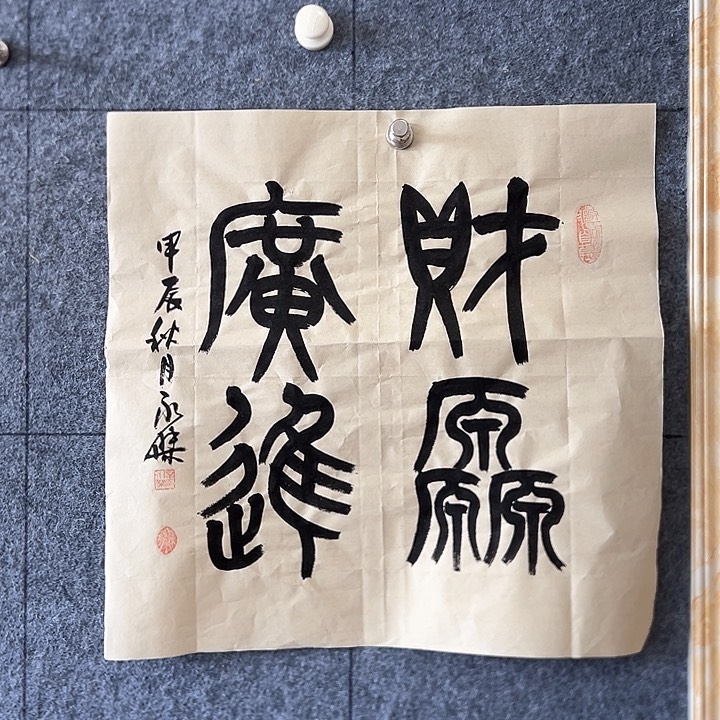 財厵
廣進
甲辰秋月永傑